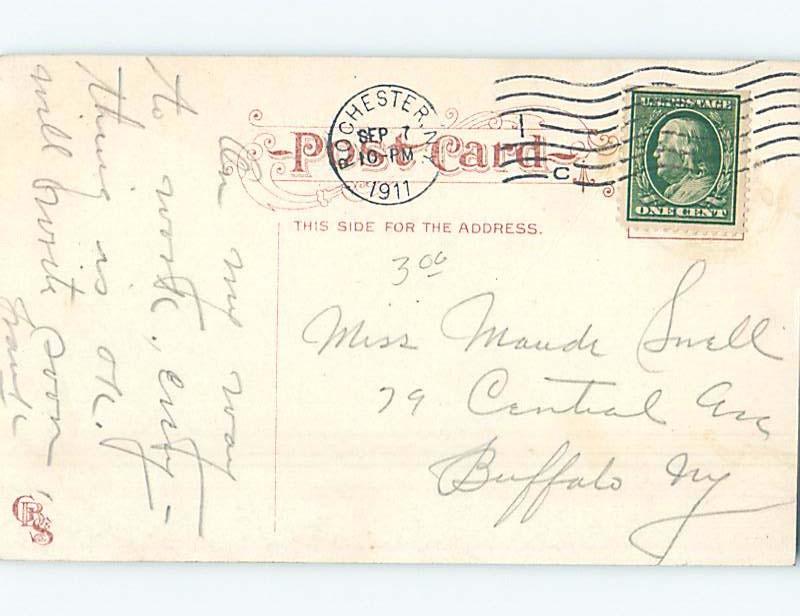 ROCHESTER, N.Y.
SEP 7
10-PM
1911
C
U.S. POSTAGE
ONE CENT
Post Card
THIS SIDE FOR THE ADDRESS.
3 00
Miss Maude Snell
79 Central Ave
Buffalo Ny
On my way
to work, every-
thing is OK.
will write soon,
Frank